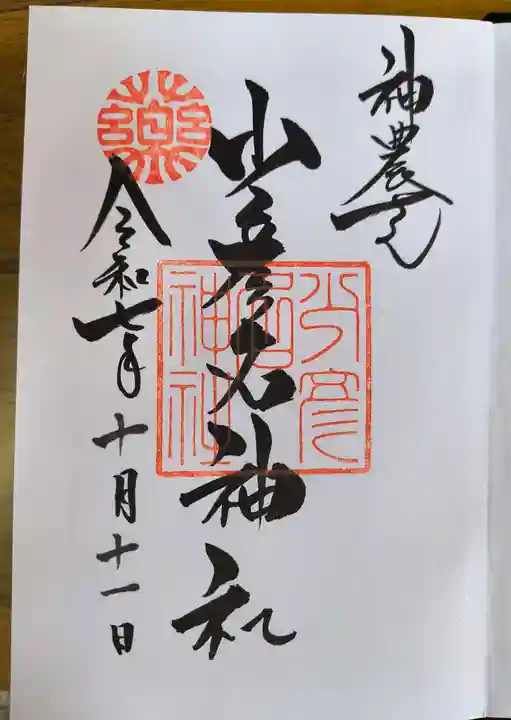 神農さん
少彦名神社
令和七年十月十一日
薬
少彦名神社